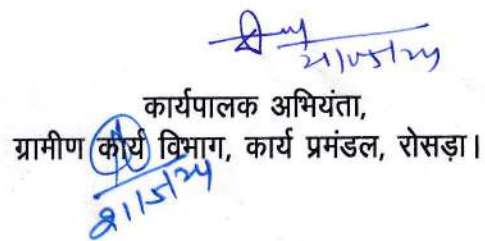 21/05/24
कार्यपालक अभियंता,
ग्रामीण कार्य विभाग, कार्य प्रमंडल, रोसड़ा।
21/5/24